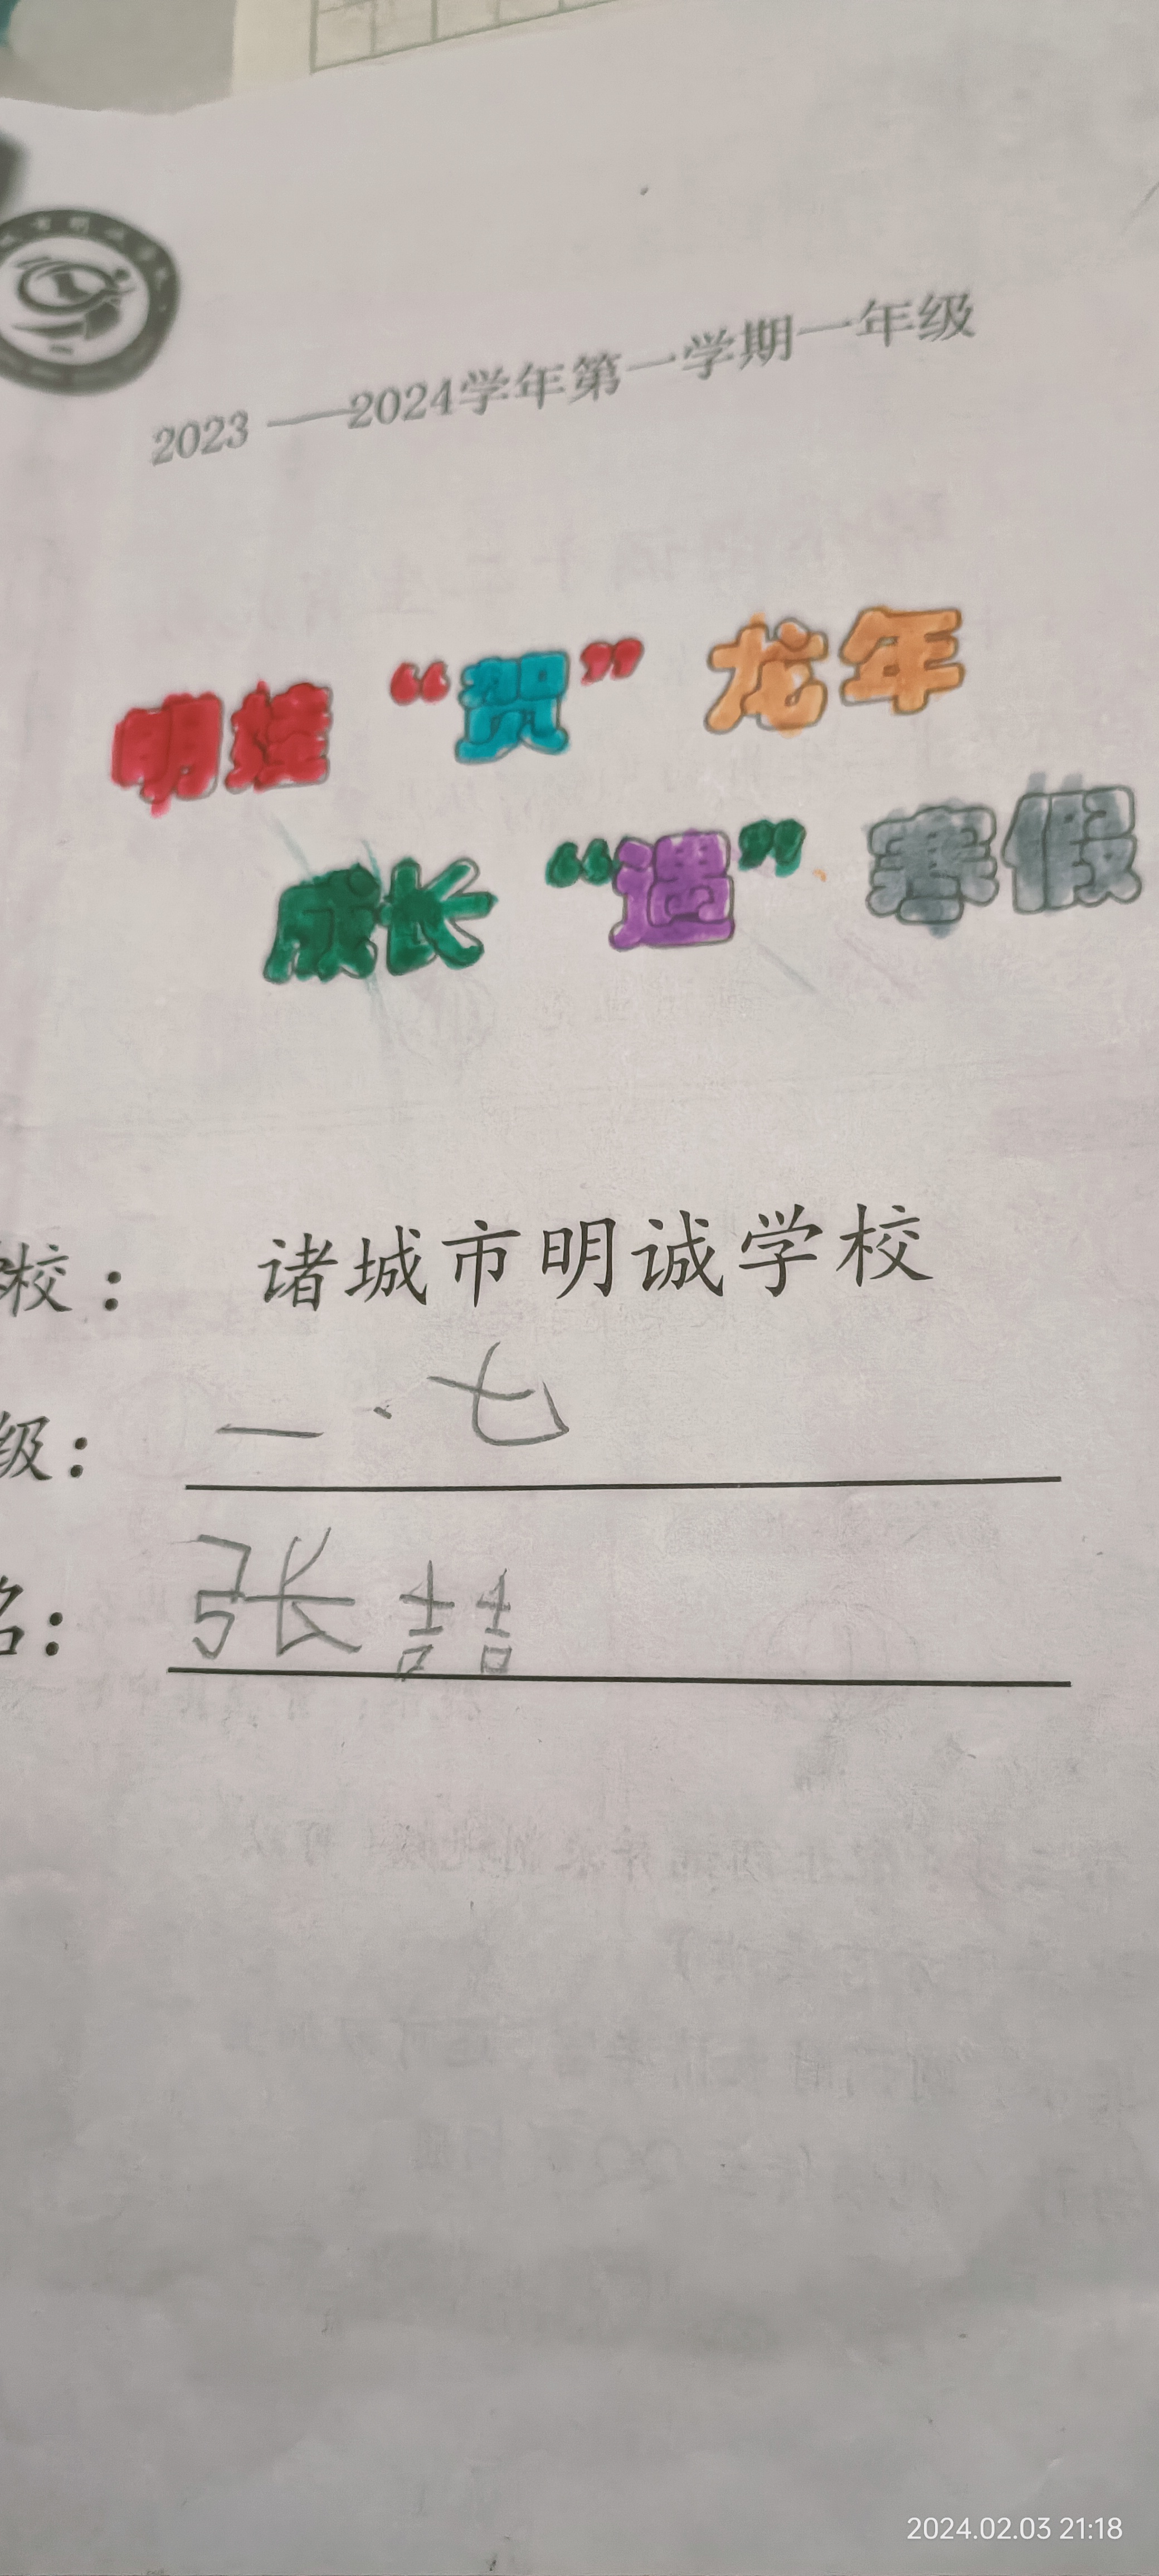 2023 ——2024学年第一学期一年级
明娃 “贺” 龙年
成长 “遇” 寒假
校： 诸城市明诚学校
级： 一·七
名： 张喆
2024.02.03 21:18